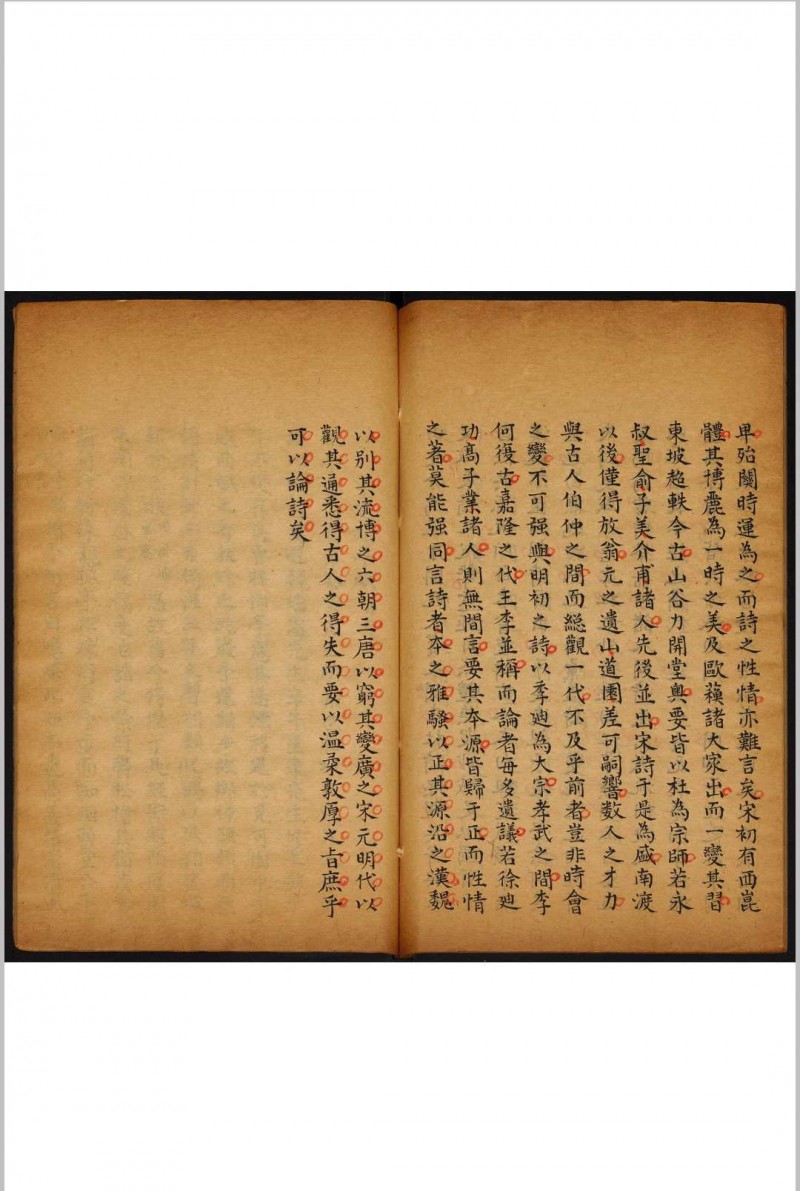 卑殆關時運為之而詩之性情亦難言矣宋初有西崑
體其博麗為一時之美及歐蘓諸大家出而一變其習
東坡超軼今古山谷力開堂奧要皆以杜為宗師若永
叔聖俞子美介甫諸人先後並出宋詩于是為盛南渡
以後僅得放翁元之遺山道園差可嗣響數人之才力
與古人伯仲之間而縂觀一代不及乎前者豈非時會
之變不可强與明初之詩以季迪為大宗孝武之間李
何復古嘉隆之代王李並稱而論者每多遺議若徐迪
功髙子業諸人則無間言要其本源皆歸于正而性情
之著莫能强同言詩者本之雅騷以正其源沿之漢魏
以别其流博之六朝三唐以窮其變廣之宋元明代以
觀其通悉得古人之得失而要以温柔敦厚之旨庶乎
可以論詩矣